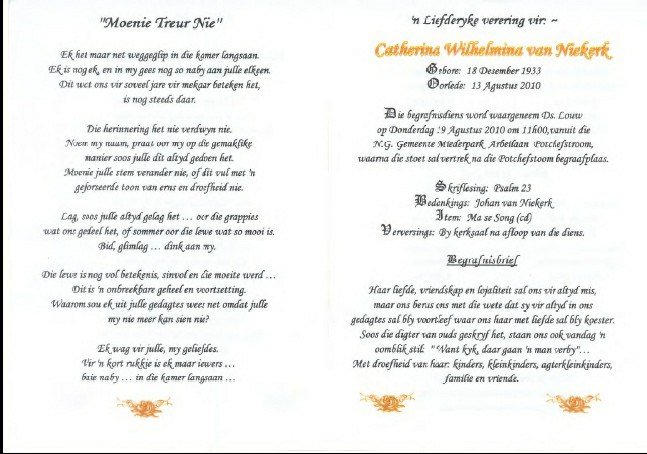 "Moenie Treur Nie"
Ek het maar net weggeglip in die kamer langsaan.
Ek is nog ek, en in my gees nog so naby aan julle elkeen.
Dit wat ons vir soveel jare vir mekaar beteken het,
is nog steeds daar.
Die herinnering het nie verdwyn nie.
Noem my naam, praat oor my op die gemaklike
manier soos julle dit altyd gedoen het.
Moenie julle stem verander nie, of dit vul met 'n
geforseerde toon van erns en droefheid nie.
Lag, soos julle altyd gelag het ... oor die grappies
wat ons gedeel het, of sommer oor die lewe wat so mooi is.
Bid, glimlag ... dink aan my.
Die lewe is nog vol betekenis, sinvol en die moeite werd ...
Dit is 'n onbreekbare geheel en voortsetting.
Waarom sou ek uit julle gedagtes wees net omdat julle
my nie meer kan sien nie?
Ek wag vir julle, my geliefdes.
Vir 'n kort rukkie is ek maar iewers ...
baie naby ... in die kamer langsaan ...
'n Liefderyke verering vir: ~
Catherina Wilhelmina van Niekerk
Gebore: 18 Desember 1933
Oorlede: 13 Augustus 2010
Die begrafnisdiens word waargeneem Ds. Louw
op Donderdag 19 Augustus 2010 om 11h00, vanuit die
N.G. Gemeente Miederpark Arbeilaan Potchefstroom,
waarna die stoet sal vertrek na die Potchefstoom begraafplaas.
Skriflesing: Psalm 23
Bedenkings: Johan van Niekerk
Item: Ma se Song (cd)
Verversings: By kerksaal na afloop van die diens.
Begrafnisbrief
Haar liefde, vriendskap en lojaliteit sal ons vir altyd mis,
maar ons berus ons met die wete dat sy vir altyd in ons
gedagtes sal bly voortleef waar ons haar met liefde sal bly koester.
Soos die digter van ouds geskryf het, staan ons ook vandag 'n
oomblik stil: "Want kyk, daar gaan 'n man verby"...
Met droefheid van haar: kinders, kleinkinders, agterkleinkinders,
familie en vriende.